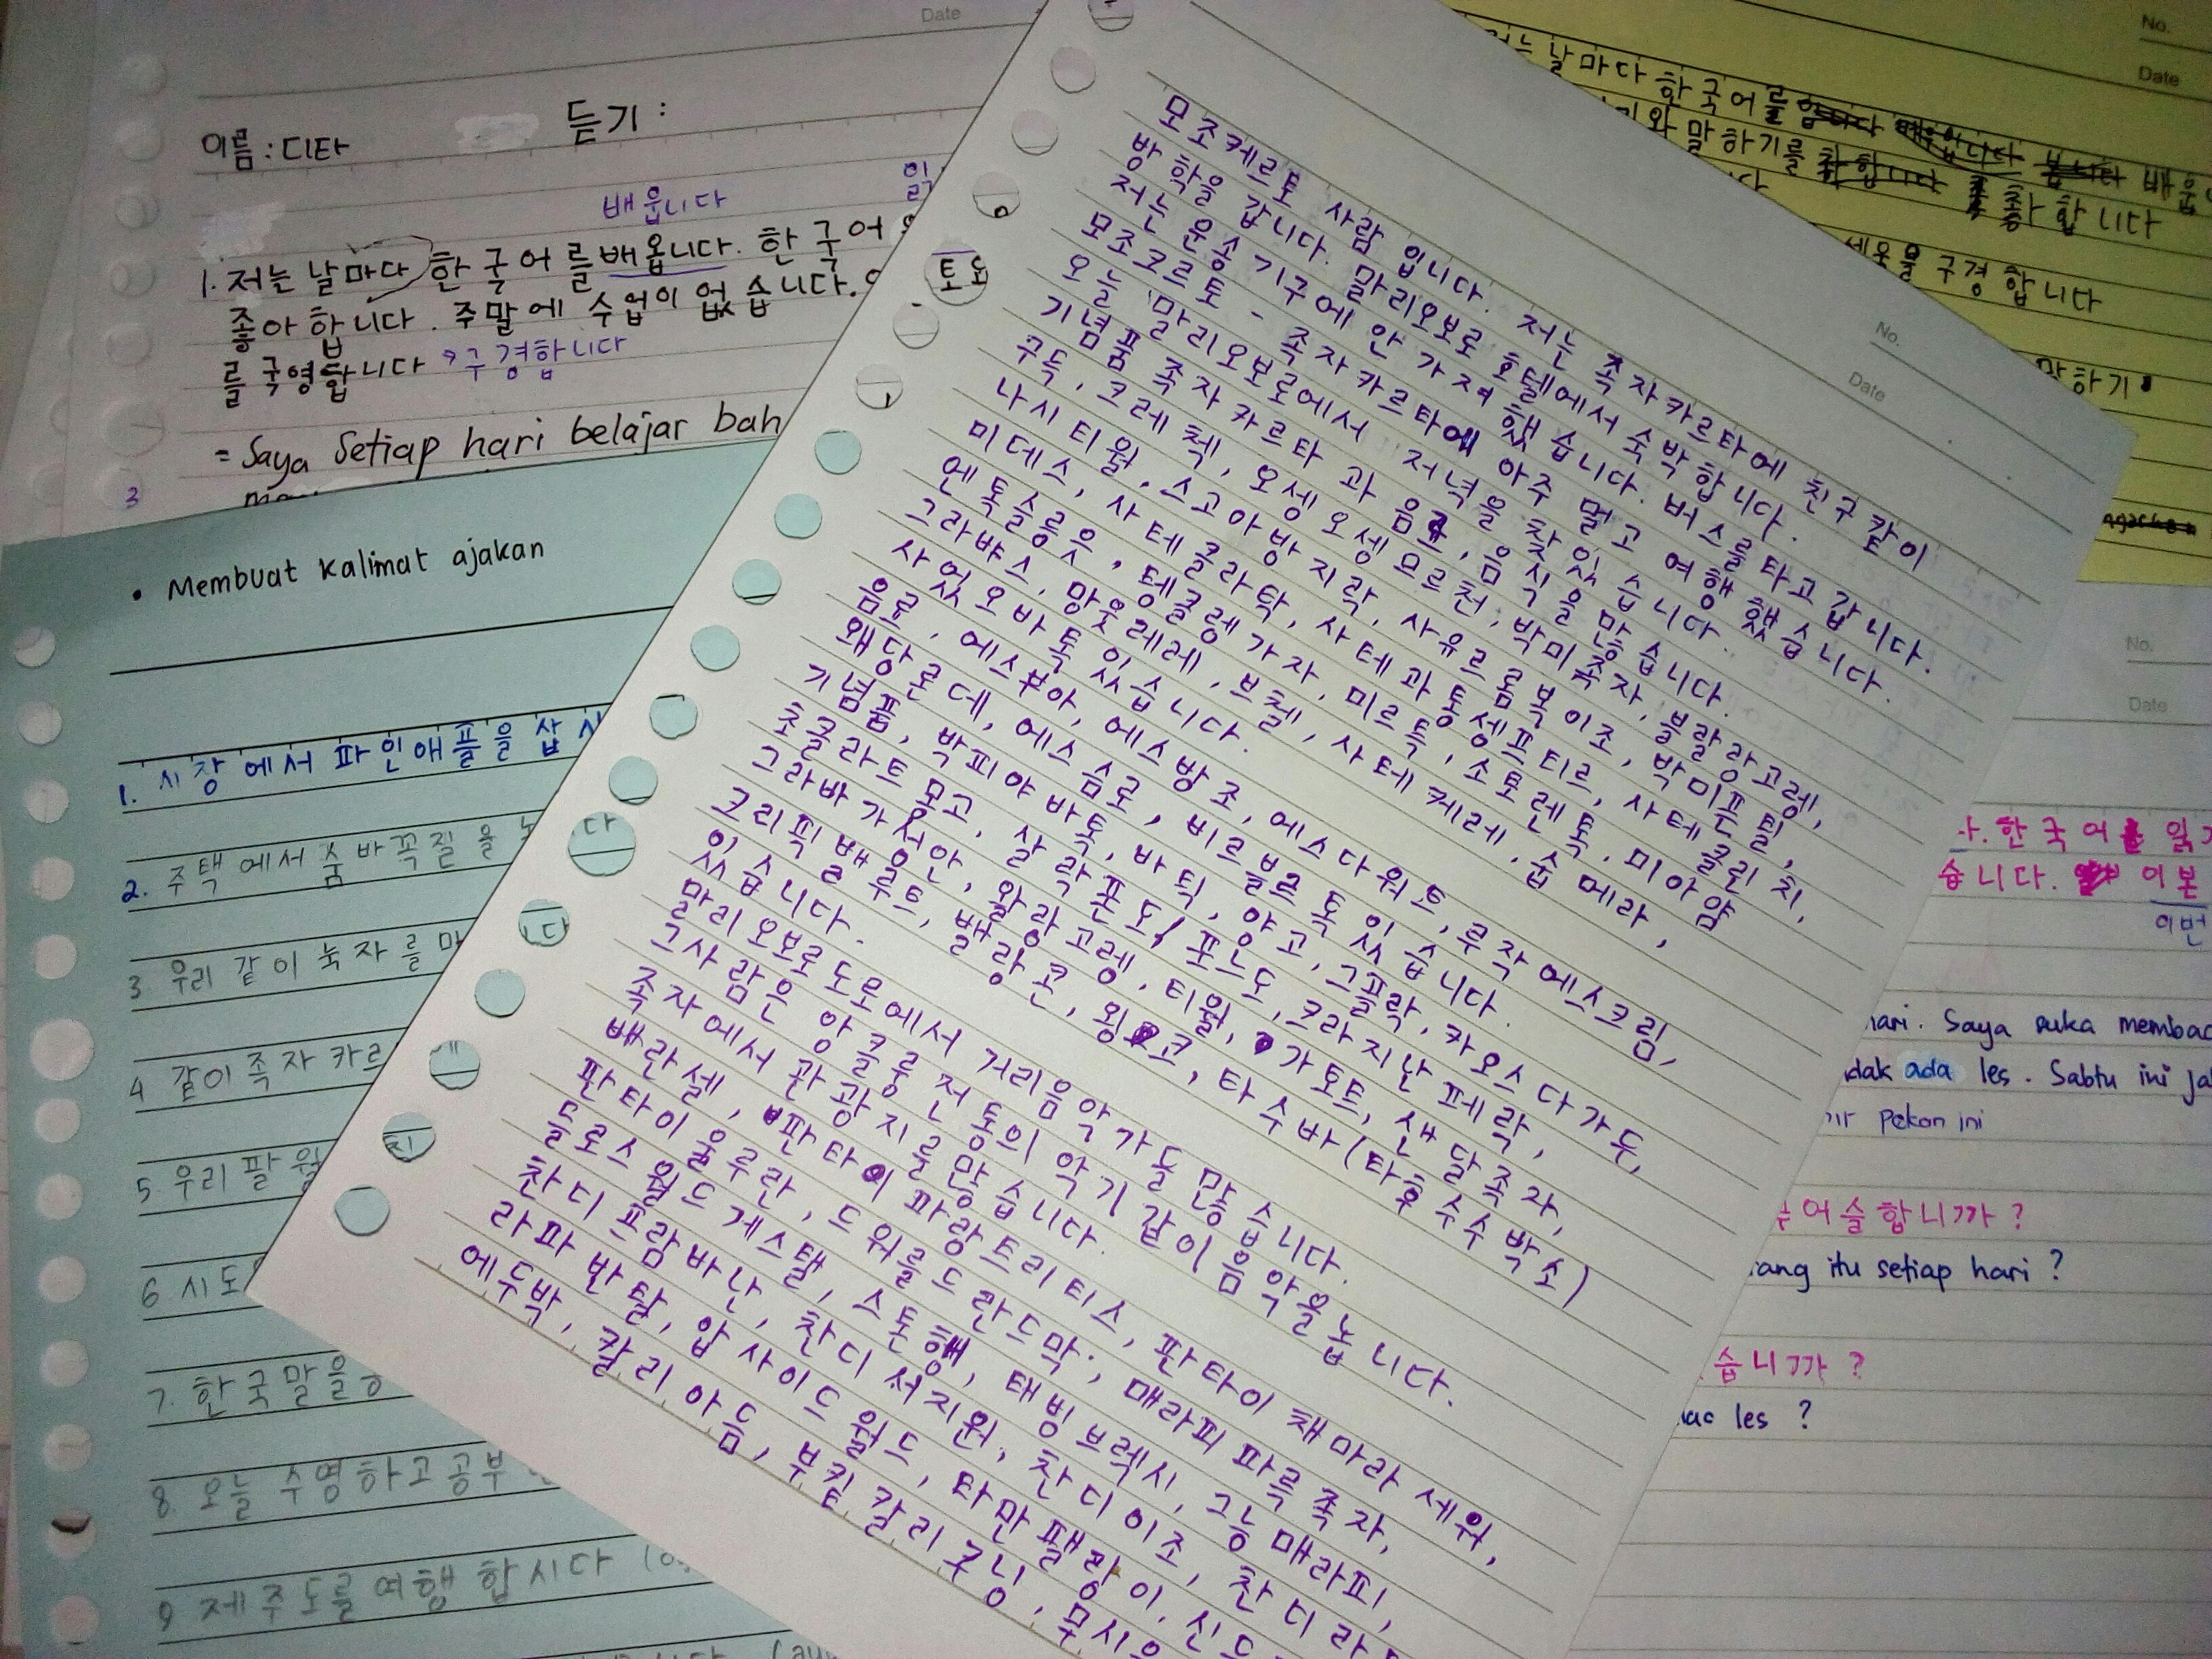 Date
이름 : 디타
듣기 :
배웁니다
1. 저는 날마다 한국어를 배웁니다. 한국어
좋아 합니다. 주말에 수업이 없습니다.
를 국영합니다 구경합니다
= Saya Setiap hari belajar bah
3
• Membuat kalimat ajakan
1. 시장에서 파인애플을 삽시
2. 주택에서 숨바꼭질을
3 우리 같이 눅자를 마
4 같이 족자카르
5. 우리 팔월
6 시도
7. 한국말을
8. 오늘 수영하고 공부
9 제주도를 여행 합시다
모조케르토 사람 입니다. 저는 족자카르타에 친구 캍이
방학을 갑니다. 말리오보로 호텔에서 숙박합니다.
저는 운송기구에 안 가져 했습니다. 버스를 타고 갑니다.
모조크르토 - 족자카르타에 아주 멀고 여행 했습니다.
오늘 말리오보로에서 저녁을 찾있습니다.
기념품 족자카르타 과 음료, 음식을 많습니다.
구득, 크레첵, 오셍오셍모르전, 박미족자, 블랄랑고렝,
나시티월, 스고아방지락, 사유르롬복이조, 박미픈틸,
미데스, 사테클라탁, 사테과통셍프티르, 사테클린치,
엔톡슬릉읏, 텡클렝가자, 미르톡, 소토렌톡, 미아얌
그라뱌스, 망웃레레, 브첼, 사테케레, 숩 메라,
사엇오바톡 있습니다.
음료, 에스부아, 에스방조, 에스다워트, 루작에스크림,
왜당론데, 에스슴로, 비르블르톡 있습니다.
기념품, 박피야바톡, 바틱, 야고, 그플락, 카오스다가두,
초클라트모고, 살락폰도, 포느도, 크라지난페락,
그라바가서안, 왈랑고렝, 티월, 가토트, 샌달족자,
크리픽배율루트, 밸랑콘, 욍코, 타수바 (타후수수박소)
있습니다.
말리오보로도로에서 거리음악가들많습니다.
그사람은 앙클룽 전통의 악기 같이 음악을 놉니다.
족자에서 관광지를 많습니다.
배란셀, 판타이파랑트리티스, 판타이채마라세워,
판타이울루란, 드워를드란드막, 매라피파륵족자,
들로스월드게스탤, 스톤행, 태빙브렉시, 그능매라피,
찬디프람바난, 찬디서지원, 찬디이조, 찬디라
라파반탈, 압사이드월드, 타만팰랑이, 신드
에두박, 칼리아듬, 부킷칼리쿠닝, 무시음
No.
Date
No.
Date
저는 날마다 한국어를 배웁
와 말하기를 좋 합니다
세옹을 구경 합니다
말하기
No.
Date
한국어를 읽기
습니다. 이본
이번
hari. Saya suka membac
idak ada les. Sabtu ini ja
ir pekan ini
어슬합니까?
ang itu setiap hari ?
습니까?
les ?